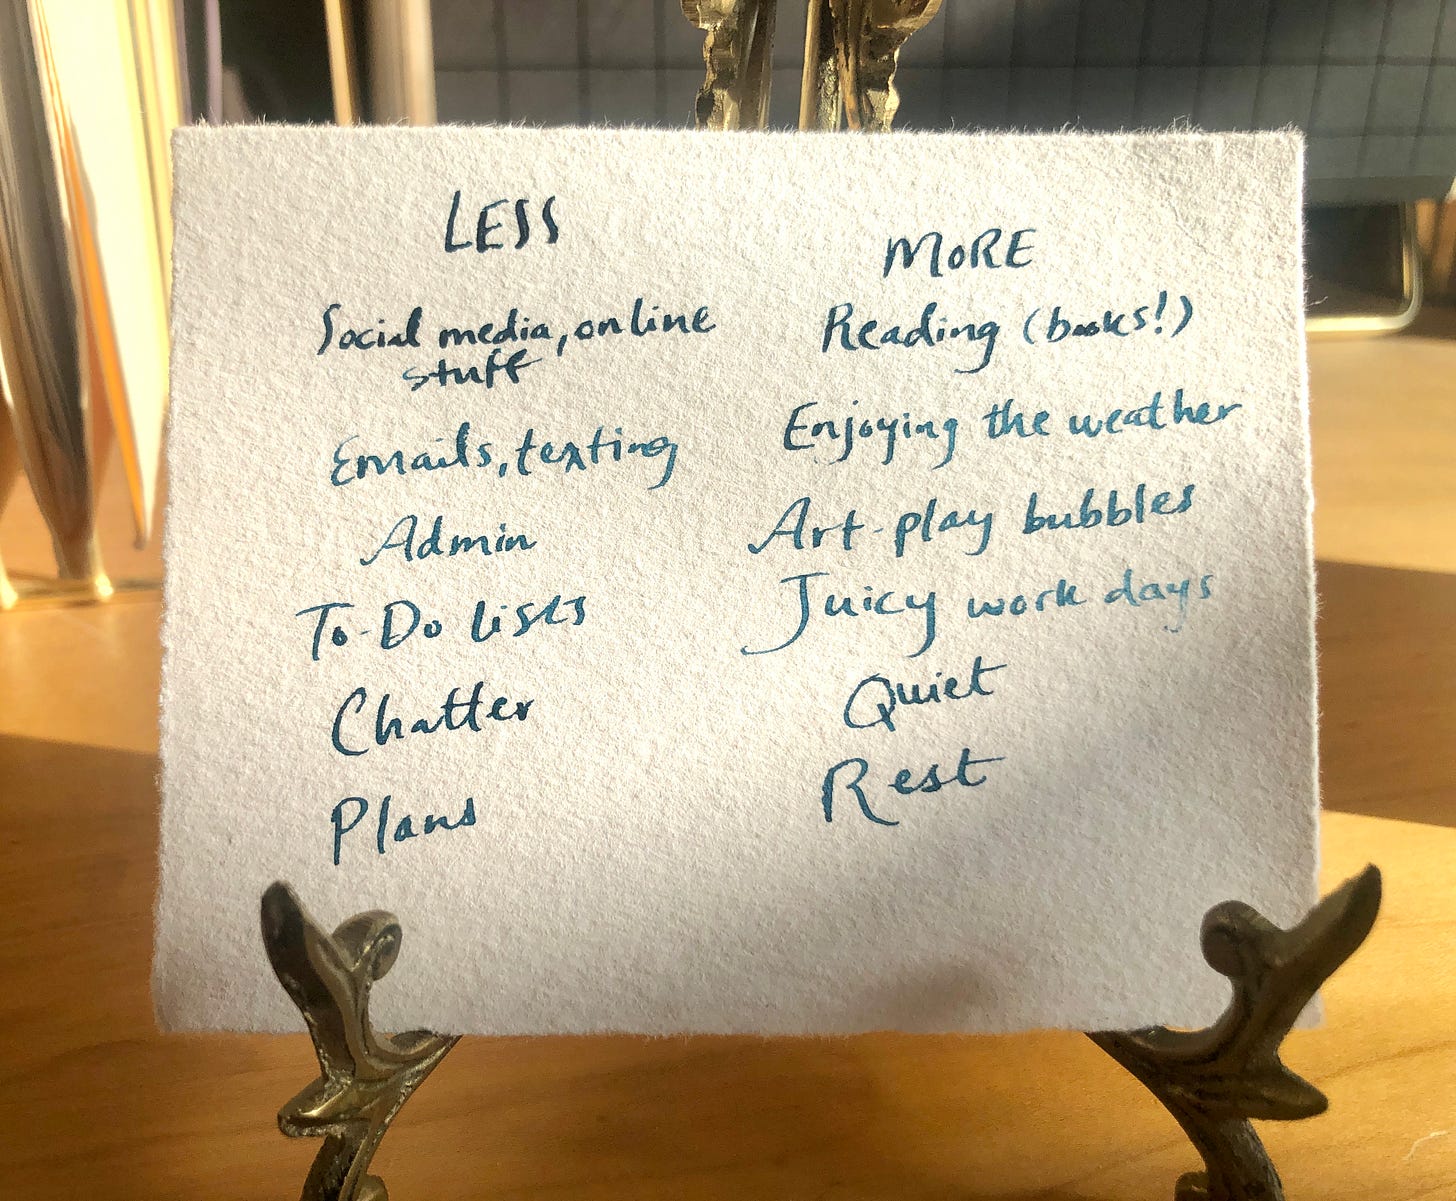 LESS
Social media, online
stuff
Emails, texting
Admin
To-Do lists
Chatter
Plans
MORE
Reading (books!)
Enjoying the weather
Art-play bubbles
Juicy work days
Quiet
Rest